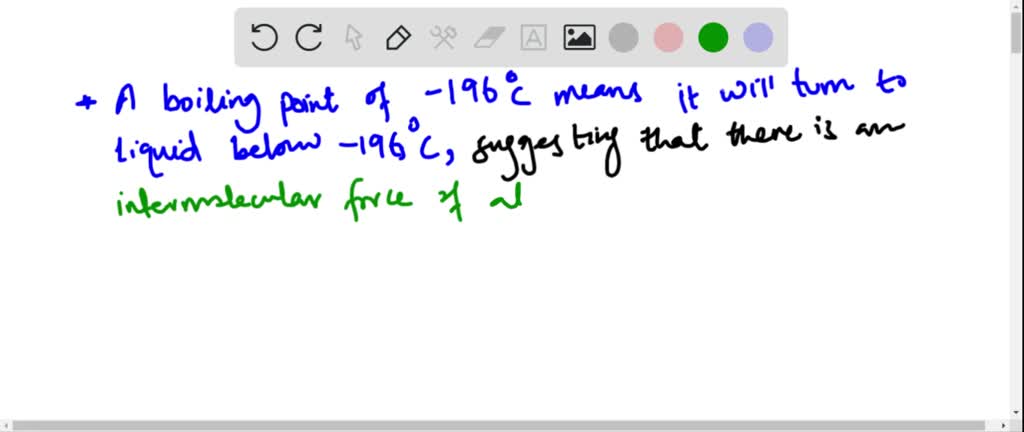 * A boiling point of -196°C means it will turn to
liquid below -196°C, suggesting that there is an
intermolecular force of at